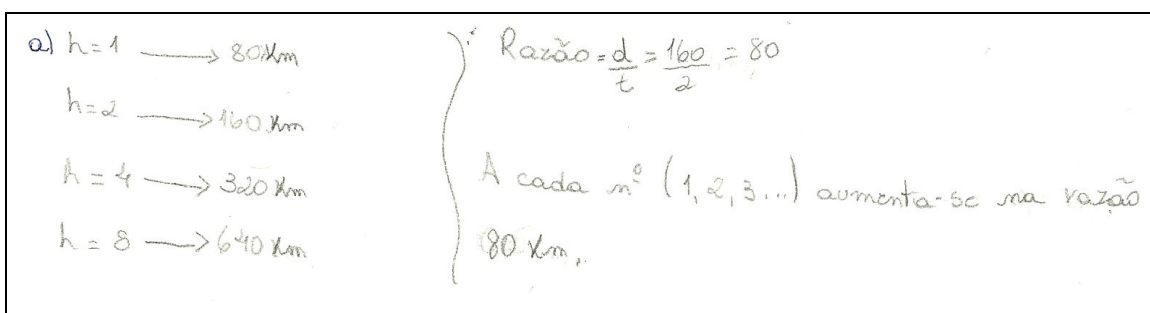 a) h=1 → 80 Km
h=2 → 160 Km
h=4 → 320 Km
h=8 → 640 Km
Razão = d/t = 160/2 = 80
A cada nº (1, 2, 3...) aumenta-se na razão
80 Km.